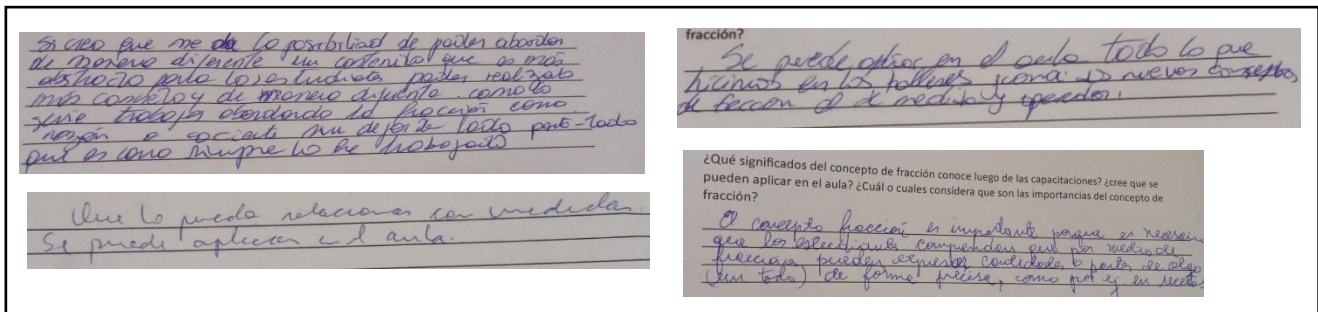 Si creo que me da la posibilidad de poder abordar
de manera diferente un contenido que es más
abstracto para los estudiantes poder realizarlo
más concreto y de manera diferente como lo
sería trabajar abordando la fracción como
razón o cociente sin dejar de lado parte-todo
que es como siempre lo he trabajado
Que lo puedo relacionar con medidas.
Se puede aplicar en el aula.
fracción?
Se puede aplicar en el aula todo lo que
hicimos en los talleres, conocí los nuevos conceptos
de fracción el de medida y operador.
¿Qué significados del concepto de fracción conoce luego de las capacitaciones? ¿cree que se
pueden aplicar en el aula? ¿Cuál o cuales considera que son las importancias del concepto de
fracción?
El concepto fracción es importante porque es necesario
que los estudiantes comprendan que por medio de
fracciones pueden expresar cantidades o partes de algo
(un todo) de forma precisa, como por ej en recetas